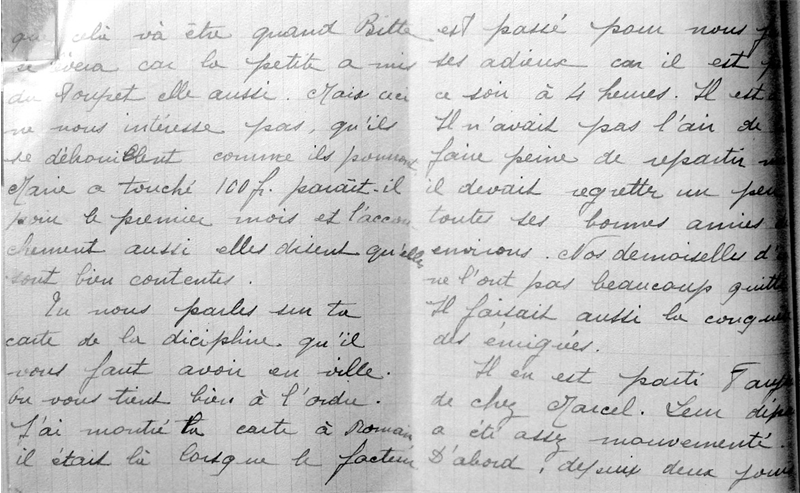 que celà và être quand Bitte
car la petite a mis
du Toupet elle aussi. Mais ceci
ne nous intéresse pas, qu'ils
se débrouillent comme ils pourront
Marie a touché 100 fr. paraît-il
pour le premier mois et l'accou
chement aussi elles disent qu'elles
sont bien contentes.
Tu nous parles sur ta
carte de la dicipline qu'il
vous faut avoir en ville.
On vous tient bien à l'ordre.
J'ai montré ta carte à Romain
il était là lorsque le facteur
est passé pour nous
ses adieux car il est
ce soir à 4 heures. Il est
Il n'avait pas l'air de
faire peine de repartir
il devait regretter un peu
toutes ses bonnes amies
environs. Nos demoiselles
ne l'ont pas beaucoup quitté
Il faisait aussi la
des émigrées.
Il en est parti
de chez Marcel. Leur
a été assez mouvementé.
D'abord, depuis deux jours